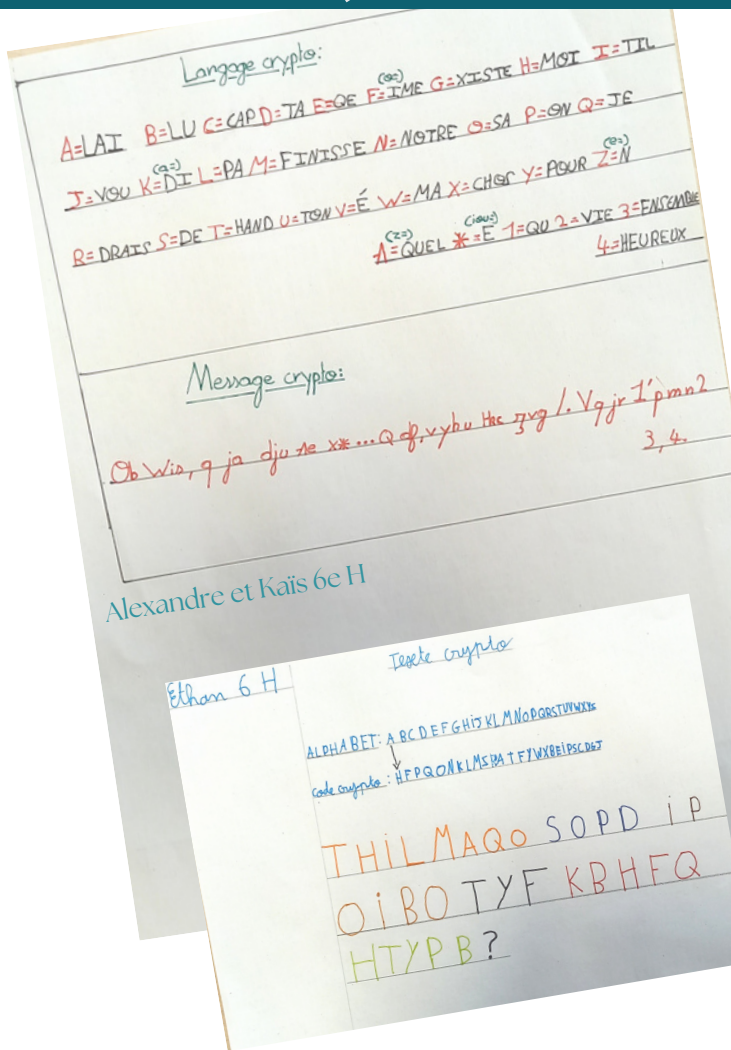 Langage crypto:
A=LAI B=LU C=CAP D=TA E=QE F=IME G=XISTE H=MOI I=TIL
J=VOU K=DI L=PA M=FINISSE N=NOTRE O=SA P=ON Q=JE
R=DRAIS S=DE T=HAND U=TON V=É W=MA X=CHOS Y=POUR Z=N
Λ=QUEL *=E 1=QU 2=VIE 3=ENSEMBLE
4=HEUREUX
Message crypto:
Ob Wio, q ja dju Λe x*... Q
1'pmn2
3, 4.
Alexandre et Kaïs 6e H
Ethan 6 H
crypto
ALPHABET: ABCDEFGHIJKLMNOPQRSTUVWXYZ
Code crypto:
THILMAQO SOPD iP
OiBO TYF KBHFQ
HTYPB?